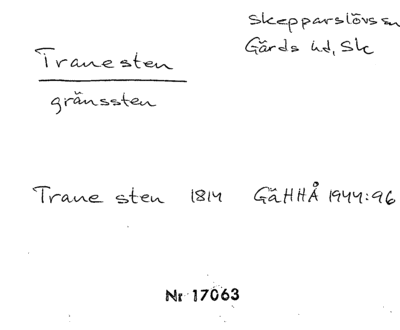 Skepparslövs sn
Gärds hd, Sk
Tranesten
gränssten
Trane sten 1814 GäHHÅ 1944:96
Nr 17063